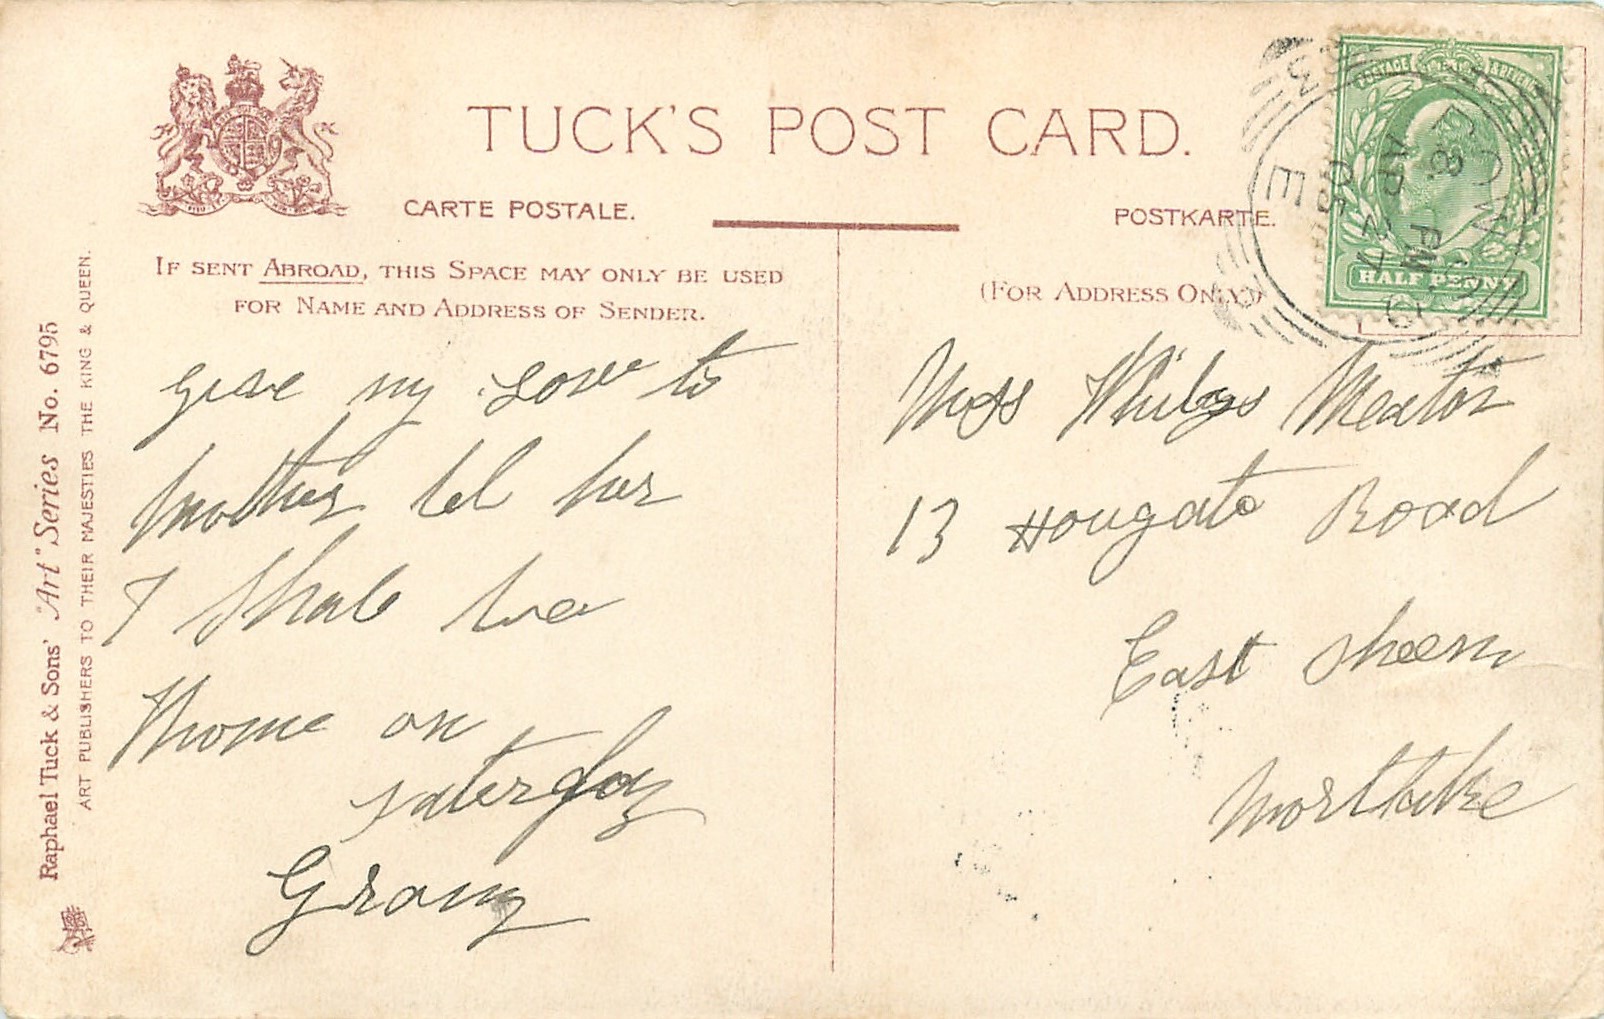 TUCK'S POST CARD.
CARTE POSTALE.
POSTKARTE.
IF SENT ABROAD, THIS SPACE MAY ONLY BE USED
FOR NAME AND ADDRESS OF SENDER.
(FOR ADDRESS ONLY)
Raphael Tuck & Sons' "Art" Series No. 6795
ART PUBLISHERS TO THEIR MAJESTIES THE KING & QUEEN.
POSTAGE & REVENUE
HALF PENNY
BOW
8 PM
AP 27
05
E
give my Love to
Mother tel her
I Shall be
home on
saterday
Grany
Miss Meator
13 Hougate Road
East Sheen
Mortlake